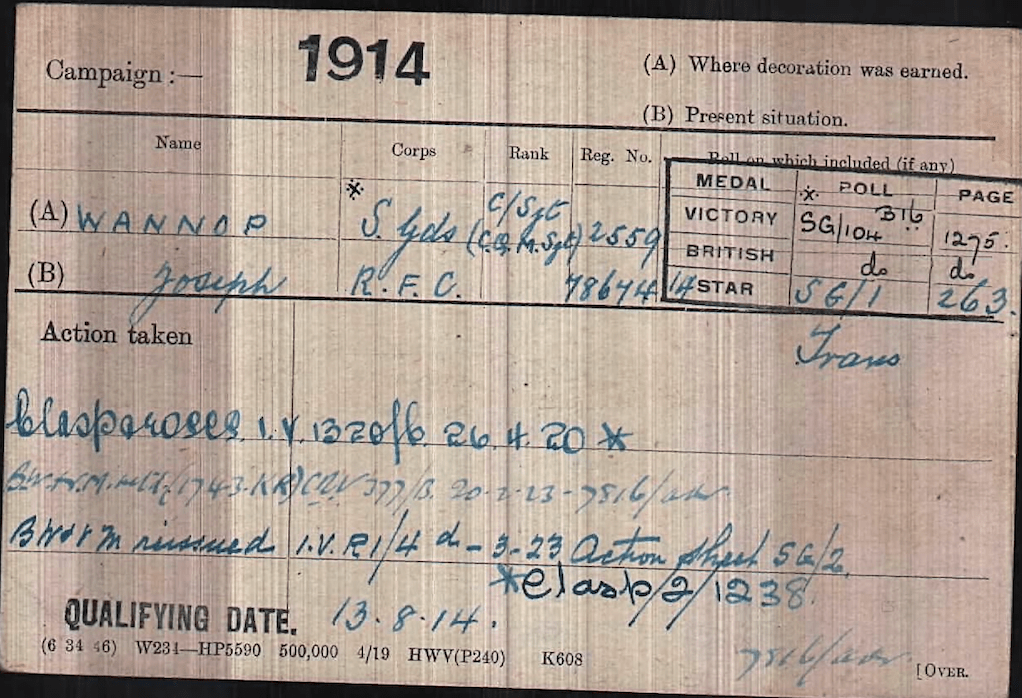 Campaign :— 1914 (A) Where decoration was earned.
(B) Present situation.
Name Corps Rank Reg. No. Roll on which included (if any)
MEDAL * ROLL PAGE
(A) WANNOP * S. Gds C/Sgt (C.Q.M.Sgt) 2559 VICTORY SG/104 B16 1275.
BRITISH do do
(B) Joseph R.F.C. 78674 14 STAR SG/1 263.
Action taken Trans
Clasp & roses I.V. 1320/6. 26.4.20 *
377/B. 20-2-23-
BW&VM reissued I.V. R1/4 d - 3-23 Action Sheet SG/2.
*Clasp/2/1238.
QUALIFYING DATE. 13.8.14.
(6 34 46) W234—HP5590 500,000 4/19 HWV(P240) K608 [OVER.